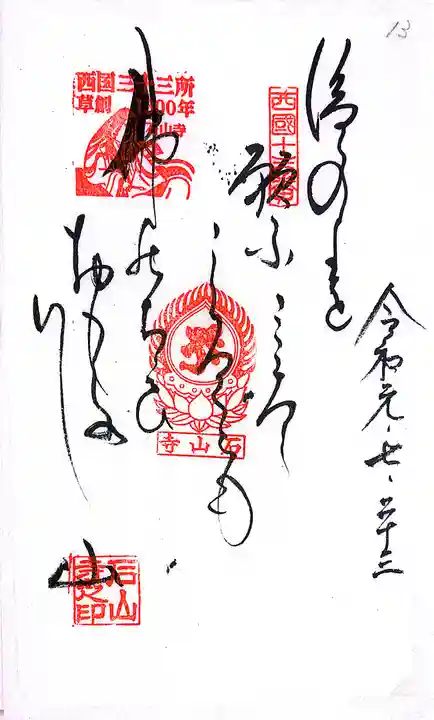 13
令和元、七、二十三
後の世を
願ふこころ
かろくとも
佛のちかひ
おもき
山
西國十三番
西国三十三所
草創1300年
石山寺
石山寺
石山寺之印